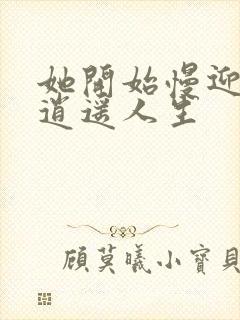 她開始慢迎
逍遥人生
顾莫曦小寶貝